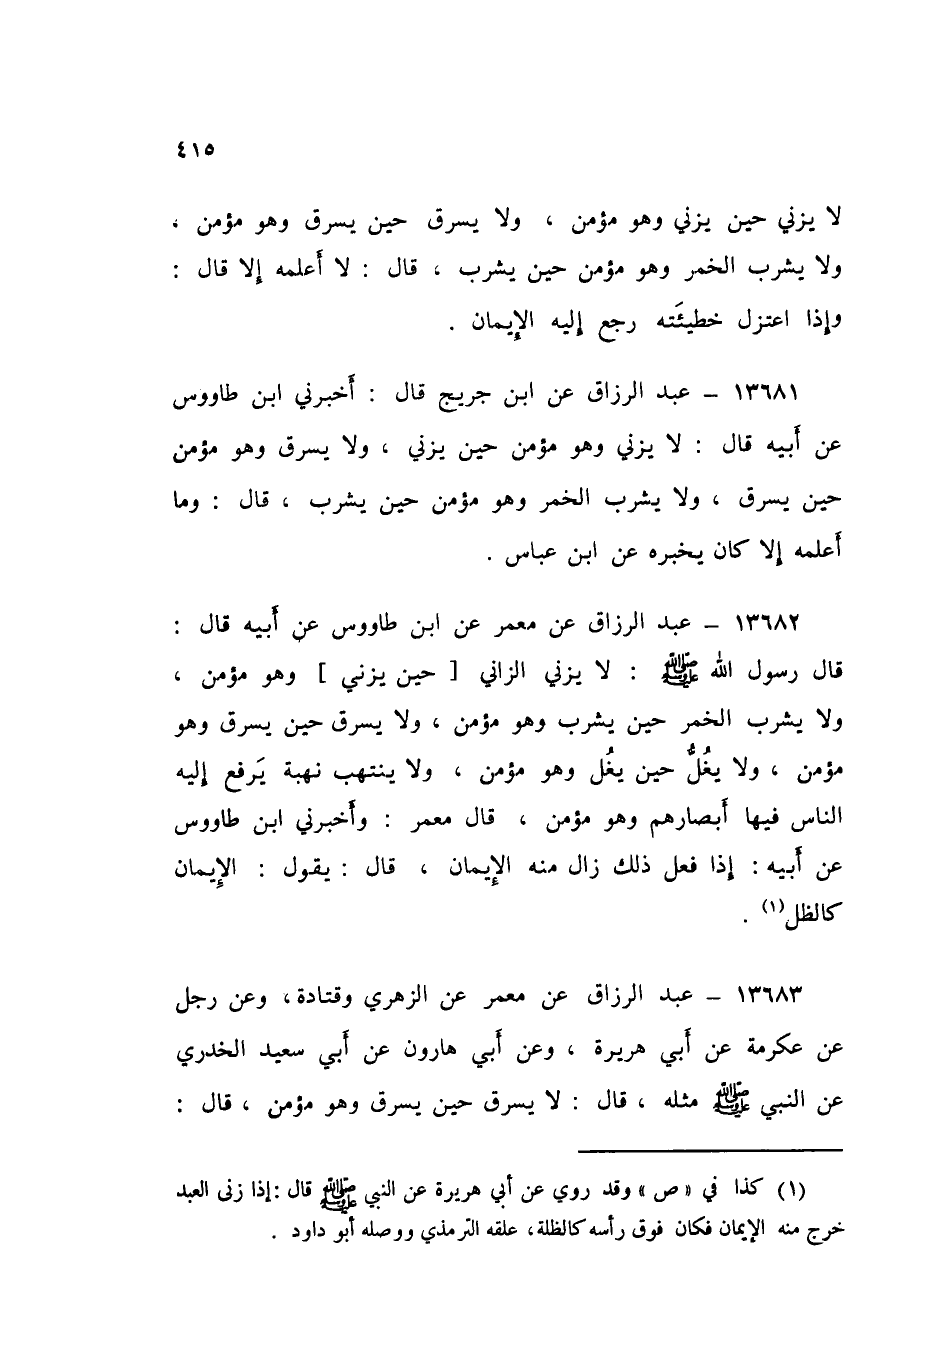 ٤١٥
لا يزني حين يزني وهو مؤمن ، ولا يسرق حين يسرق وهو مؤمن ،
ولا يشرب الخمر وهو مؤمن حين يشرب ، قال : لا أعلمه إلا قال :
وإذا اعتزل خطيئَته رجع إليه الإيمان .
١٣٦٨١ – عبد الرزاق عن ابن جريج قال : أخبرني ابن طاووس
عن أبيه قال : لا يزني وهو مؤمن حين يزني ، ولا يسرق وهو مؤمن
حين يسرق ، ولا يشرب الخمر وهو مؤمن حين يشرب ، قال : وما
أعلمه إلا كان يخبره عن ابن عباس .
١٣٦٨٢ – عبد الرزاق عن معمر عن ابن طاووس عن أبيه قال :
قال رسول الله ﷺ : لا يزني الزاني [ حين يزني ] وهو مؤمن ،
ولا يشرب الخمر حين يشرب وهو مؤمن ، ولا يسرق حين يسرق وهو
مؤمن ، ولا يغُلُّ حين يغُل وهو مؤمن ، ولا ينتهب نهبة يَرفع إليه
الناس فيها أبصارهم وهو مؤمن ، قال معمر : وأخبرني ابن طاووس
عن أبيه : إذا فعل ذلك زال منه الإيمان ، قال : يقول : الإيمان
كالظل(١) .
١٣٦٨٣ – عبد الرزاق عن معمر عن الزهري وقتادة ، وعن رجل
عن عكرمة عن أبي هريرة ، وعن أبي هارون عن أبي سعيد الخدري
عن النبي ﷺ مثله ، قال : لا يسرق حين يسرق وهو مؤمن ، قال :
(١) كذا في « ص » وقد روي عن أبي هريرة عن النبي ﷺ قال : إذا زنى العبد
خرج منه الإيمان فكان فوق رأسه كالظلة ، علقه الترمذي ووصله أبو داود .